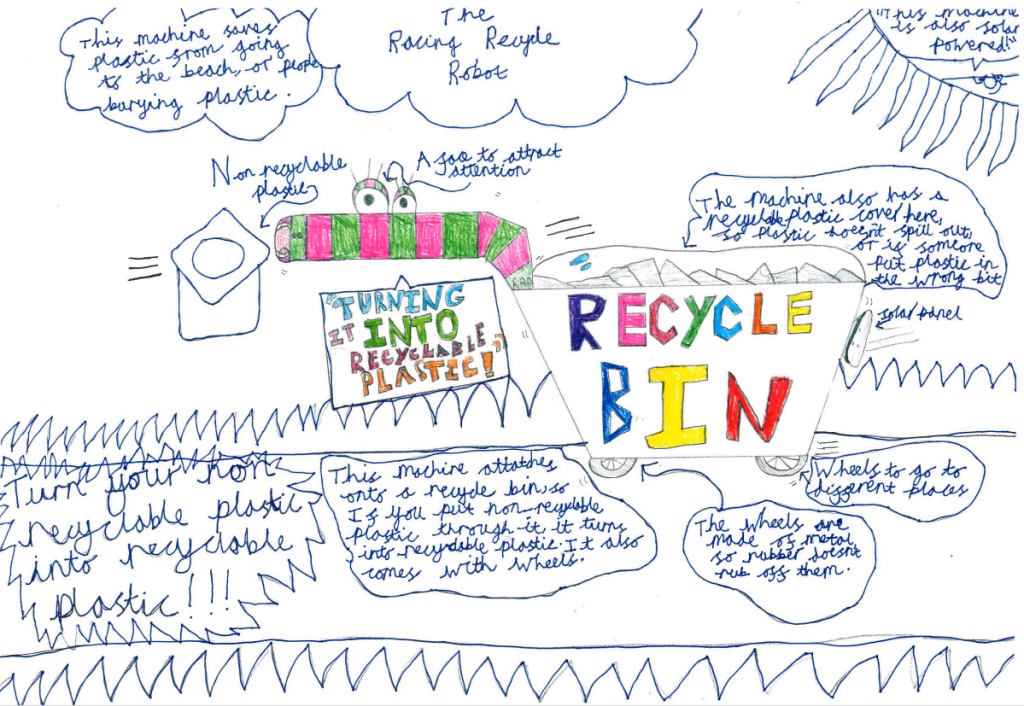 The
Racing Recycle
Robot
This machine saves
plastic from going
to the beach, or people
burying plastic.
"This machine
is also solar
powered!"
Non recyclable
plastic
A face to attract
attention
The machine also has a
recyclable plastic cover here,
so plastic doesn't spill out,
or if someone
put plastic in
the wrong bit
solar panel
"TURNING
IT INTO
RECYCLABLE
PLASTIC!"
RECYCLE
BIN
Turn your non
recyclable plastic
into recyclable
plastic!!!
This machine attatches
onto a recycle bin, so
If you put non-recyclable
plastic through it, it turns
into recyclable plastic. It also
comes with wheels.
Wheels to go to
different places
The wheels are
made of metal
so rubber doesn't
rub off them.